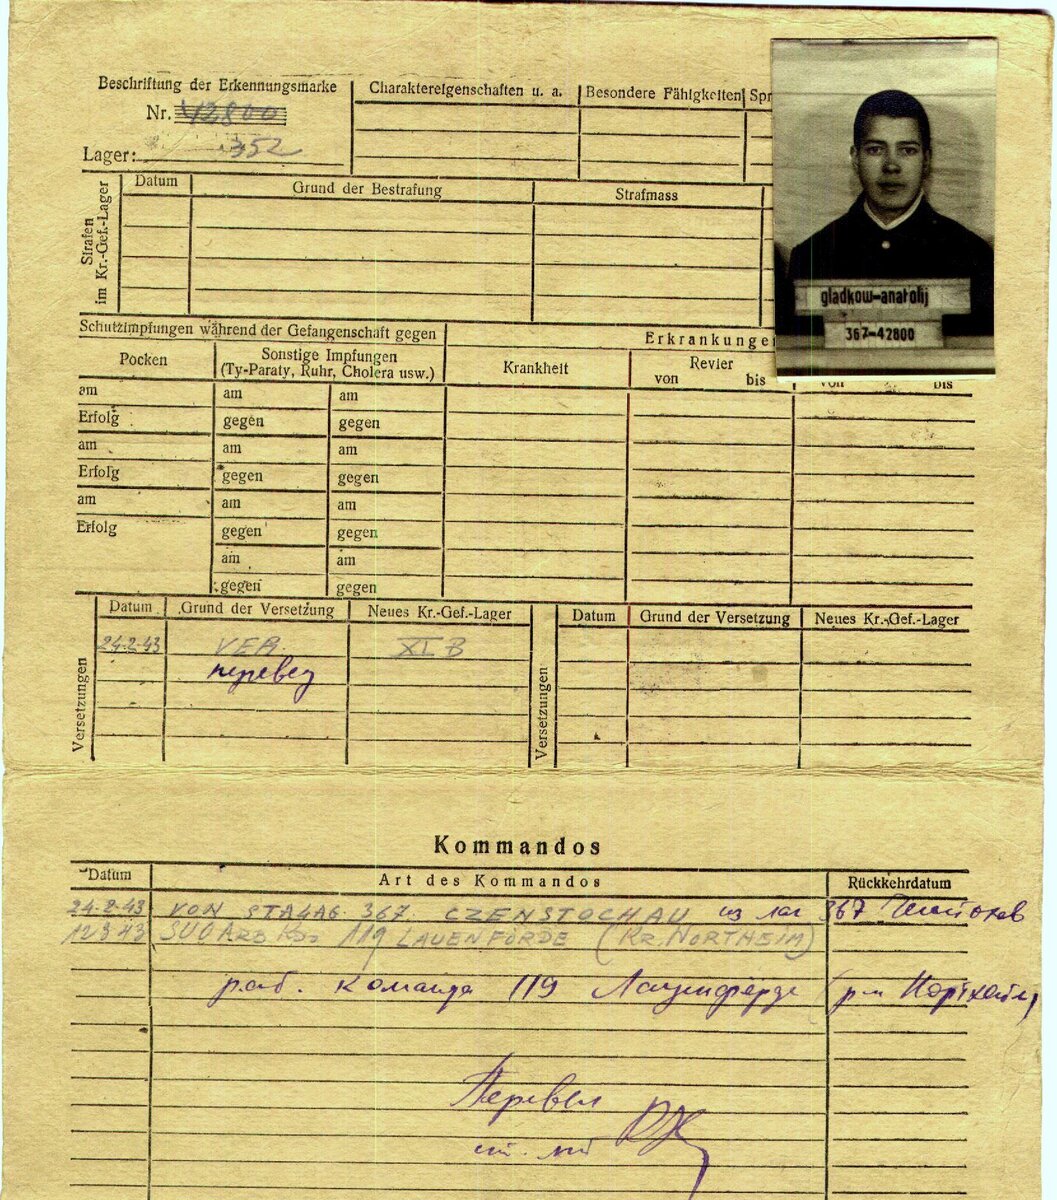 Beschriftung der Erkennungsmarke
Nr. 42800
Lager: 352
Charaktereigenschaften u. a.
Besondere Fähigkeiten
Spr
gladkow-anatolij
367-42800
Strafen im Kr.-Gef.-Lager
Datum
Grund der Bestrafung
Strafmass
Schutzimpfungen während der Gefangenschaft gegen
Erkrankungen
Pocken
Sonstige Impfungen
(Ty-Paraty, Ruhr, Cholera usw.)
Krankheit
Revier
von bis
von bis
am am am
Erfolg gegen gegen
am am am
Erfolg gegen gegen
am am am
Erfolg gegen gegen
am am
gegen gegen
Versetzungen
Datum Grund der Versetzung Neues Kr.-Gef.-Lager
24.2.43 VER XI B
перевед
Versetzungen
Datum Grund der Versetzung Neues Kr.-Gef.-Lager
Kommandos
Datum Art des Kommandos Rückkehrdatum
24.2.43 VON STALAG. 367. CZENSTOCHAU из лаг 367
12.3.43 ARB KDO 119 LAUENFÖRDE (KR. NORTHEIM)
раб. команда 119 Лауенферде (р-н Нортхейм)
Перевел
ст. л-т